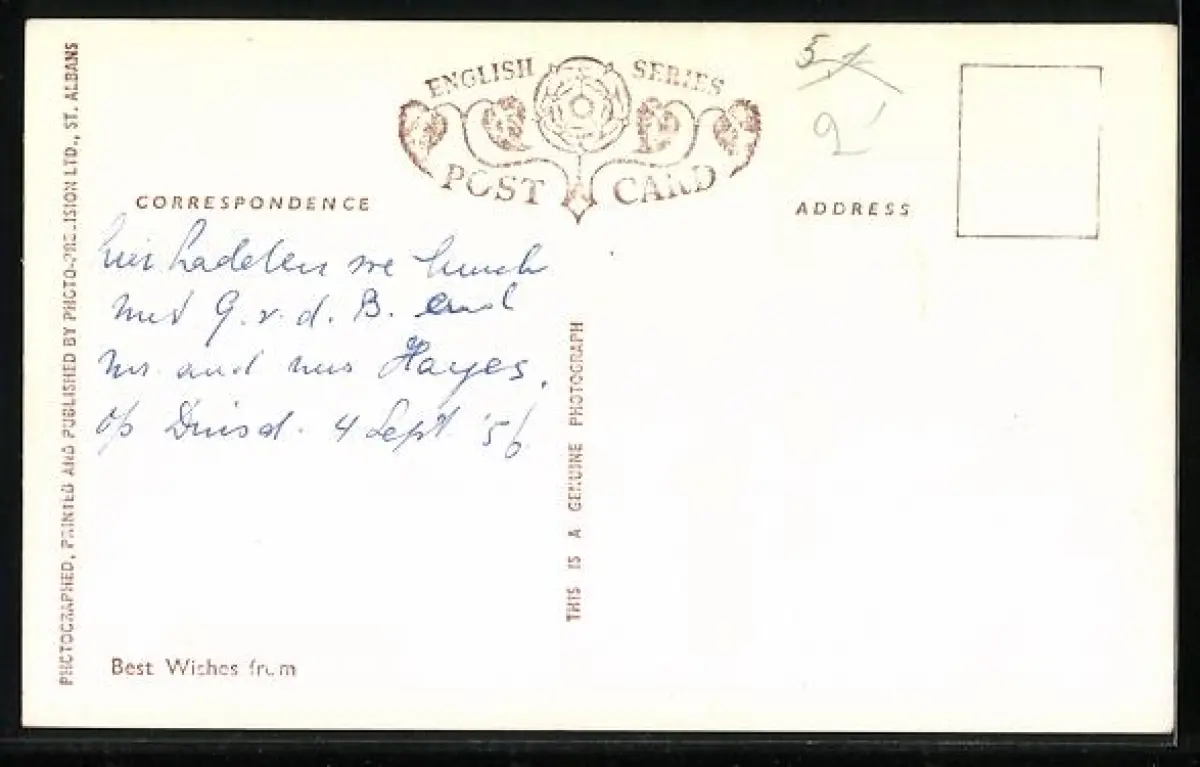 ENGLISH SERIES
POST CARD
CORRESPONDENCE
ADDRESS
hier hadden we lunch
met G.v.d. B. end
Mr. and Mrs Hayes.
o/s Dinsd. 4 Sept '56
THIS IS A GENUINE PHOTOGRAPH
PHOTOGRAPHED, PRINTED AND PUBLISHED BY PHOTO-PRECISION LTD., ST. ALBANS
Best Wishes from